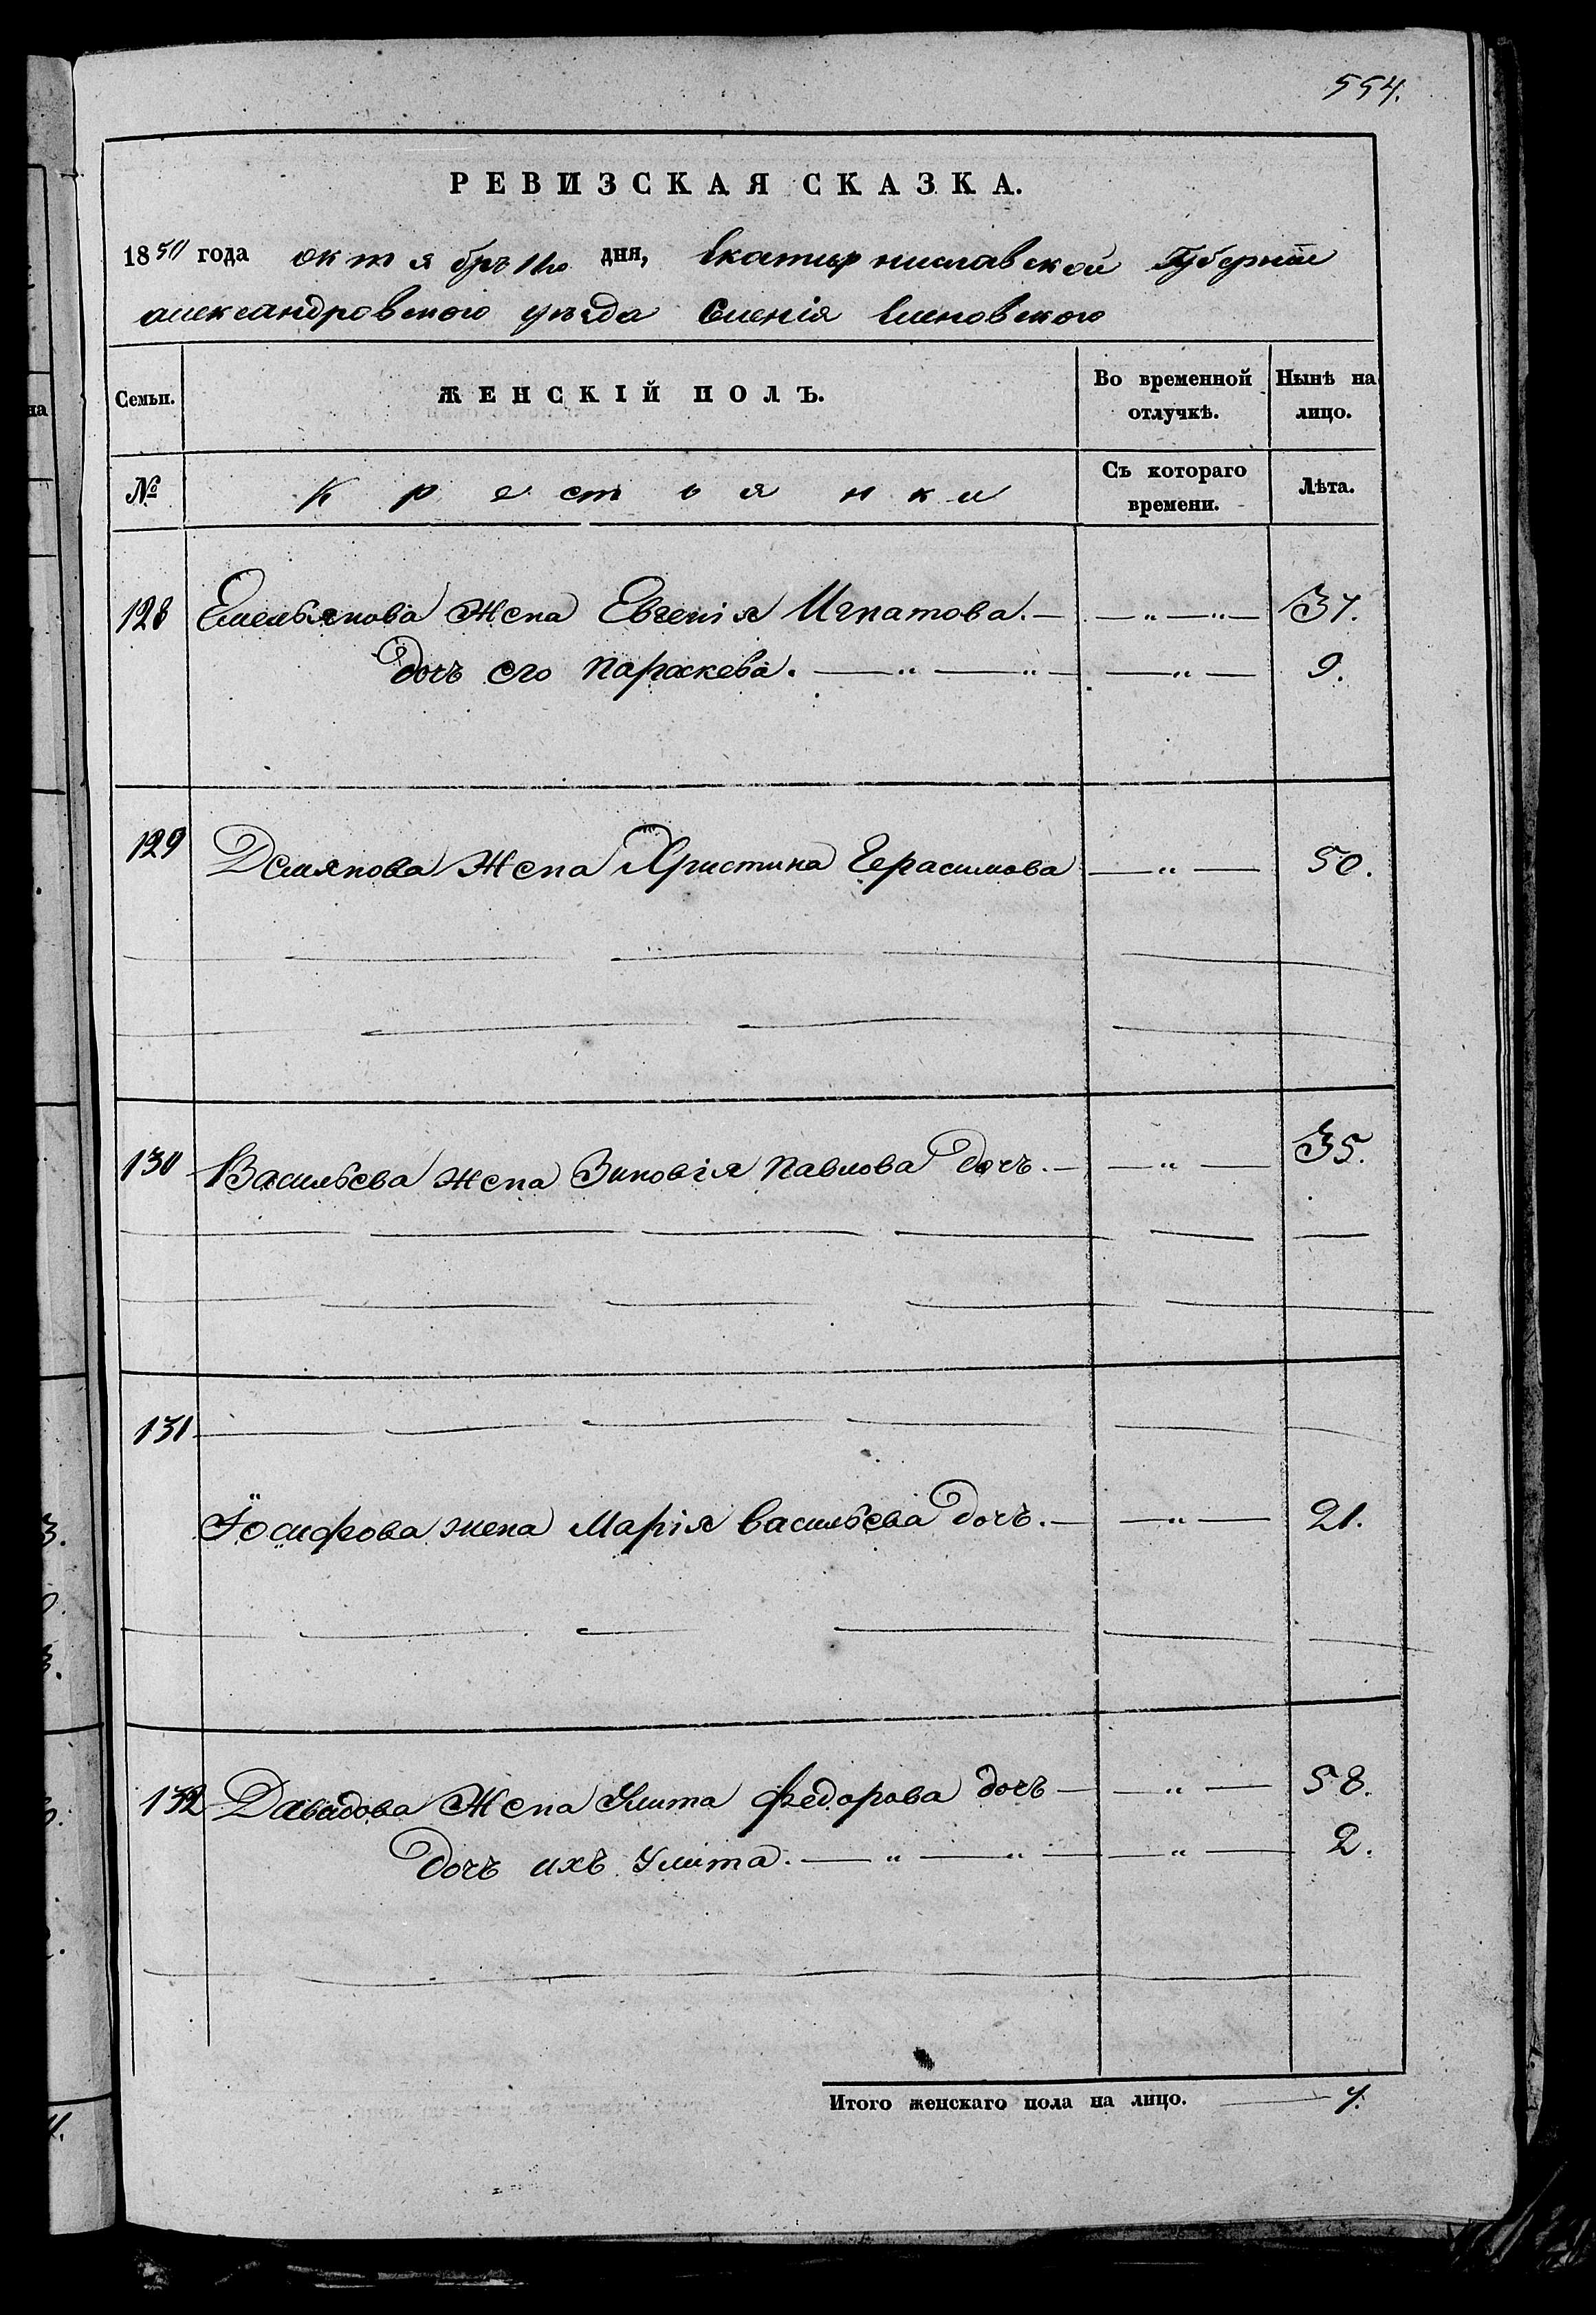 554.
РЕВИЗСКАЯ СКАЗКА.
1850 года октября 1го дня, Екатериславской Губерніи
александровского уѣзда Сіленія Еленовского
Семьи. ЖЕНСКІЙ ПОЛЪ. Во временной отлучкѣ. Нынѣ на лицо.
№ Крестьянки Съ котораго времени. Лѣта.
128 Емельянова Жена Евгенія Игнатова. — — " — " — 37.
дочь его Параскева. — " — " — — " — 9.
129 Демянова Жена Христина Герасимова — " — 50.
130 Васильева Жена Зиновія Павлова дочь. — — " — 35.
131
Іосифова жена Марія Васильева дочь. — — " — 21.
132 Давидова Жена Улита Федорова дочь — — " — 58.
дочь ихъ Улита. — " — " — — " — 2.
Итого женскаго пола на лицо. — 7.